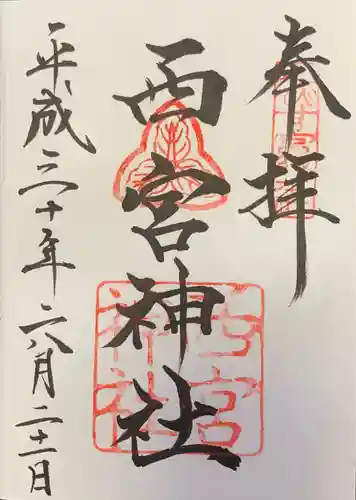 奉拝
西宮神社
西宮神社
平成三十年六月二十一日